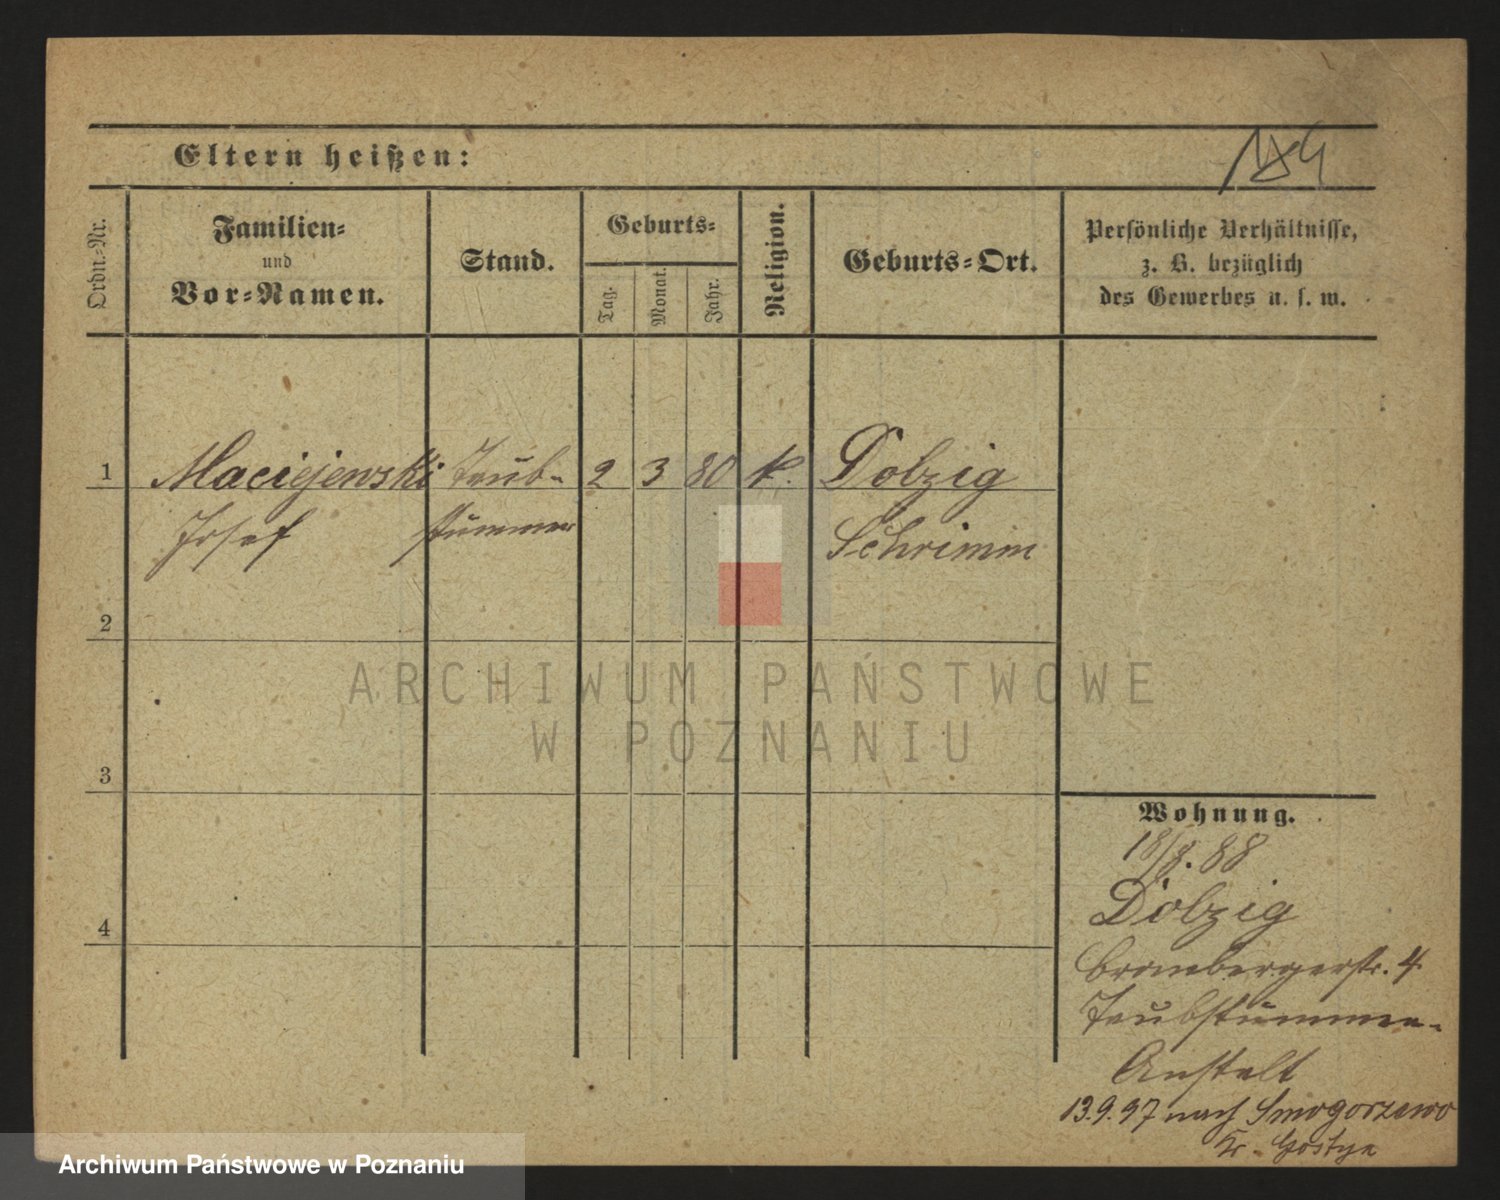 184
Eltern heißen:
Ordn.-Nr.
Familien-
und
Vor-Namen.
Stand.
Geburts-
Tag.
Monat.
Jahr.
Religion.
Geburts-Ort.
Persönliche Verhältnisse,
z. B. bezüglich
des Gewerbes u. s. w.
1 Maciejewski Taub- 2 3 80 k. Dolzig
Josef stummer Schrimm
2
3
4
Wohnung.
18/8. 88
Dolzig
Brombergerstr. 4
Taubstummen-
Anstalt
13.9.97 nach Smogorzewo
Kr. Gostyn
ARCHIWUM PAŃSTWOWE
W POZNANIU
Archiwum Państwowe w Poznaniu